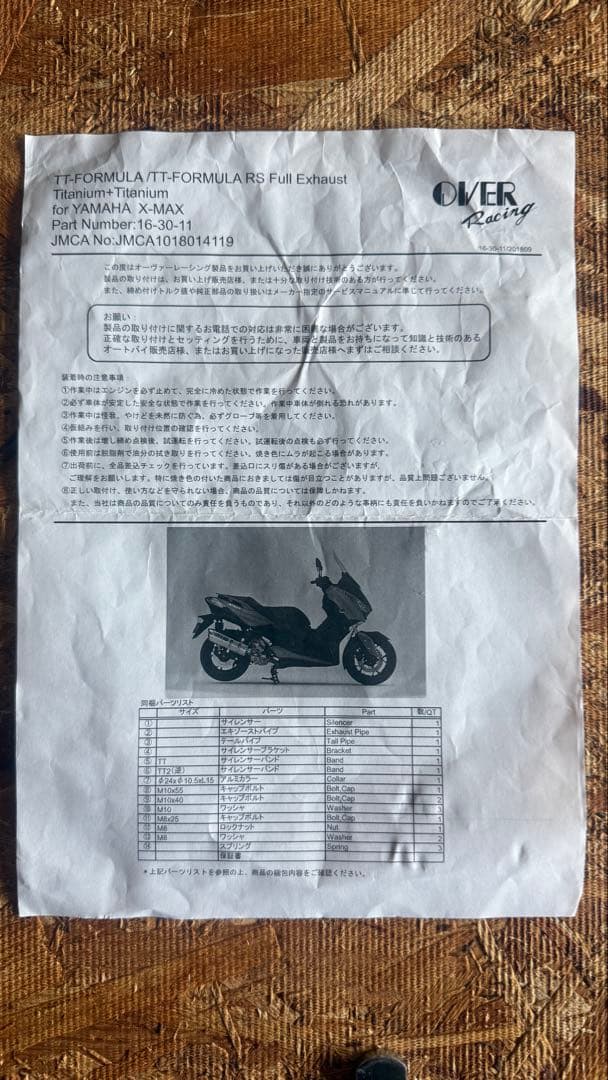 TT-FORMULA /TT-FORMULA RS Full Exhaust
Titanium+Titanium
for YAMAHA X-MAX
Part Number:16-30-11
JMCA No:JMCA1018014119
OVER Racing
16-30-11/201809
この度はオーヴァーレーシング製品をお買い上げいただき誠にありがとうございます。
製品の取り付けは、お買い上げ販売店様、または十分な取り付け技術のある方が行ってください。
また、締め付けトルク値や純正部品の取り扱いはメーカー指定のサービスマニュアルに準じて行ってください。
お願い:
製品の取り付けに関するお電話での対応は非常に困難な場合がございます。
正確な取り付けとセッティングを行うために、車両と製品をお持ちになって知識と技術のある
オートバイ販売店様、またはお買い上げになった販売店様へまずはご相談ください。
装着時の注意事項:
①作業中はエンジンを必ず止めて、完全に冷めた状態で作業を行ってください。
②必ず車体が安定した安全な状態で作業を行ってください。作業中車体が倒れる恐れがあります。
③作業中は怪我、やけどを未然に防ぐ為、必ずグローブ等を着用してください。
④仮組みを行い、取り付け位置の確認を行ってください。
⑤作業後は増し締め点検後、試運転を行ってください。試運転後の点検も必ず行ってください。
⑥使用前は脱脂剤で油分の拭き取りを行ってください。焼き色にムラが起こる場合があります。
⑦出荷前に、全品差込チェックを行っています。差込口にスリ傷がある場合がございますが、
ご理解をお願いします。特に焼き色の付いた商品におきましては傷が目立つことがありますが、品質上問題ございません。
⑧正しい取付け、使い方などを守られない場合、商品の品質については保障しかねます。
また、当社は商品の品質についてのみ責任を負うものであり、それ以外のどのような事柄にも責任を負いかねますのでご了承ください。
同梱パーツリスト
サイズ パーツ Part 数/QT
① サイレンサー Silencer 1
② エキゾーストパイプ Exhaust Pipe 1
③ テールパイプ Tail Pipe 1
④ サイレンサーブラケット Bracket 1
⑤ TT サイレンサーバンド Band 1
⑥ TT2(逆) サイレンサーバンド Band 1
⑦ φ24xφ10.5xL15 アルミカラー Collar 1
⑧ M10x55 キャップボルト Bolt,Cap 1
⑨ M10x40 キャップボルト Bolt,Cap 2
⑩ M10 ワッシャ Washer 3
⑪ M8x25 キャップボルト Bolt,Cap 1
⑫ M8 ロックナット Nut 1
⑬ M8 ワッシャ Washer 2
⑭ スプリング Spring 3
保証書
*上記パーツリストを参照の上、商品の梱包内容をご確認ください。